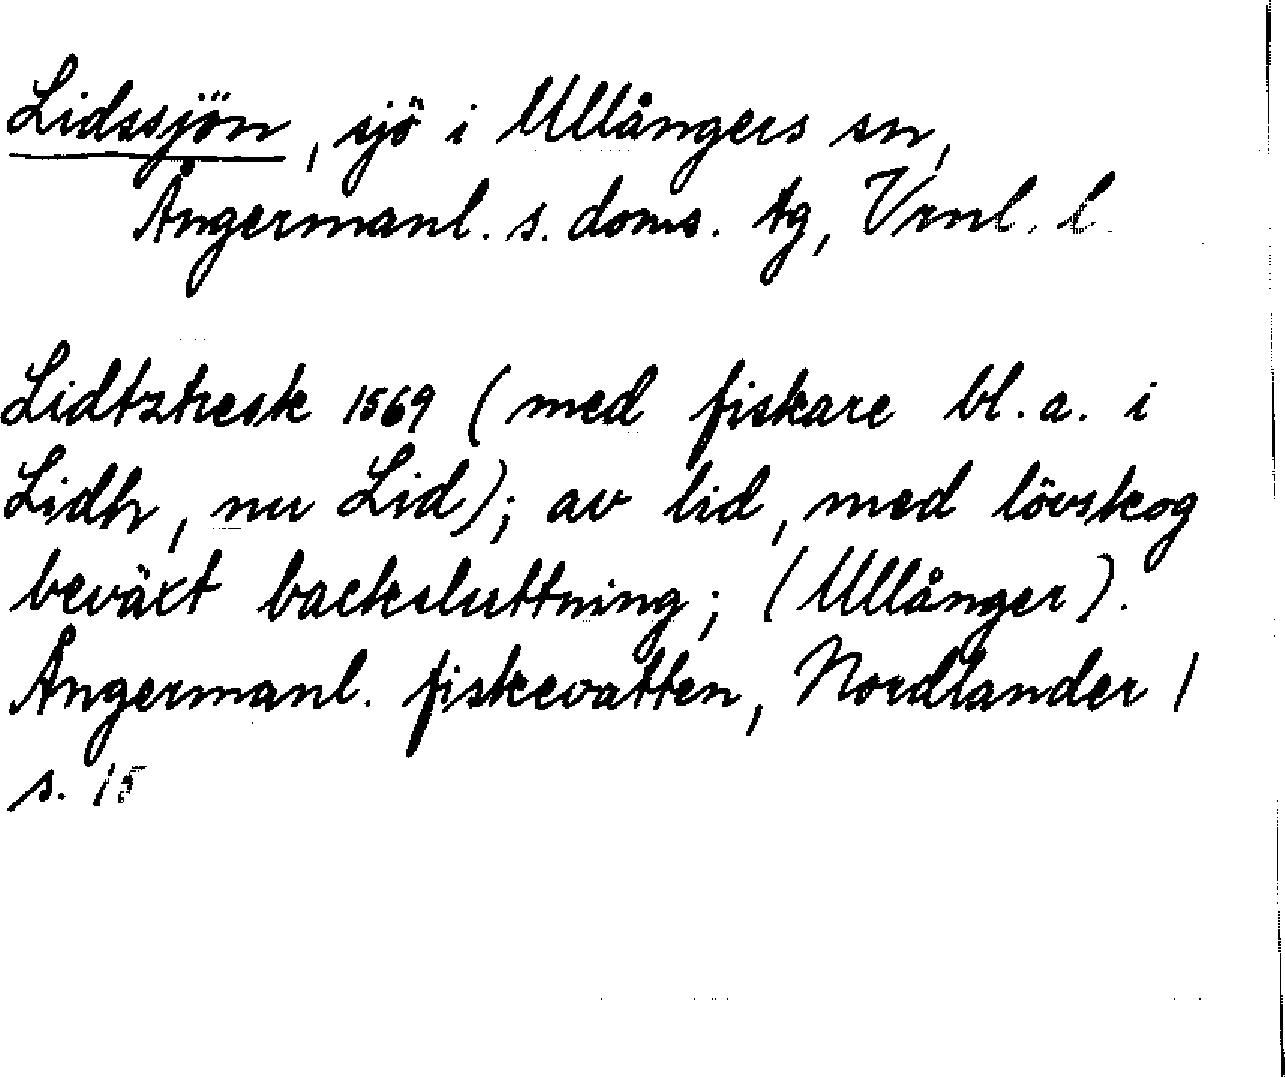 Lidssjön, sjö i Ullångers sn,
Ångermanl. s. doms. tg, Vrnl. l.
Lidtztresk 1569 (med fiskare bl. a. i
Lidh, nu Lid); av lid, med lövskog
beväxt backsluttning; (Ullånger).
Ångermanl. fiskevatten, Nordlander 1
s. 15